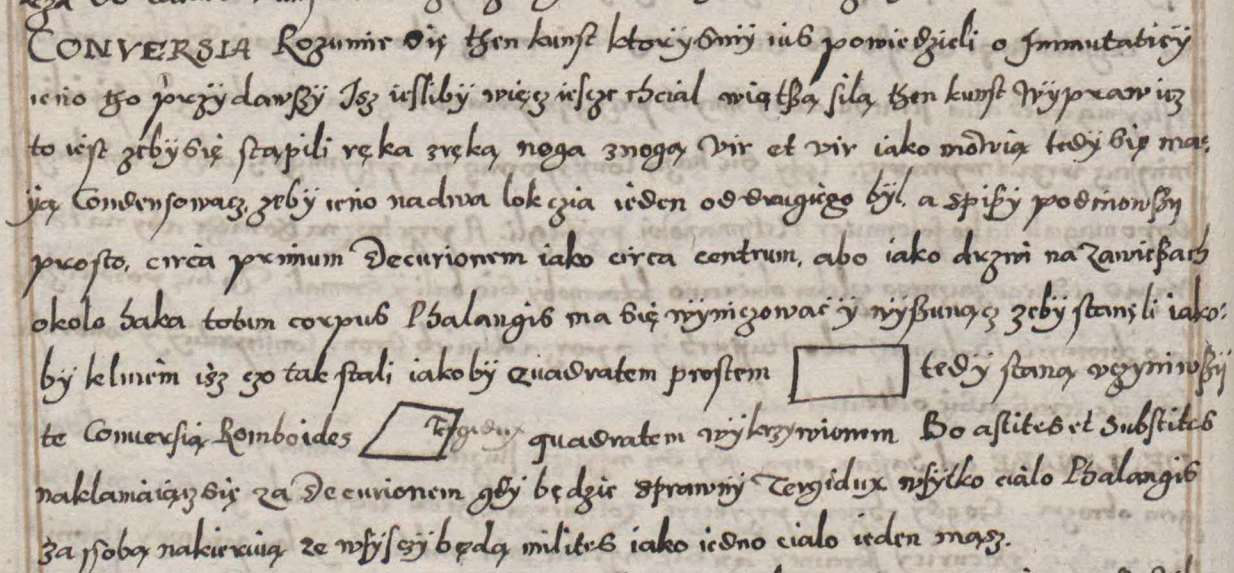 CONVERSIA Rozumie się then kunst ktorysmy ius powiedzieli o Immutatiey
ieno tho przydawszy Isz iesliby więcz iescze chcial więtszą silą then kunst wyprawicz
to iest zeby się stąpili ręka zręką noga znogą vir et vir iako mowią tedy się ma,
ią Condensowacz, zeby ieno nadwa lokczia ieden oddrugiego był, a spisy podniowszy
prosto, circa primum Decurionem iako circa centrum, abo iako drzwi na zawiesach
około haka totum corpus Phalangis ma się wyniczować y wysunącz zeby stanęli iako:
by klinem isz czo tak stali iakoby quadratem prostem tedy staną vczyniwszy
te Conversią Romboides Tergidux quadratem wykrzywionem Bo astites et substites
naklaniaiącz się za Decurionem gdy będzie sprawny Tergidux wsytko cialo Phalangis
za sobą nakieruią ze wsyscy będą milites iako iedno cialo ieden mąsz.